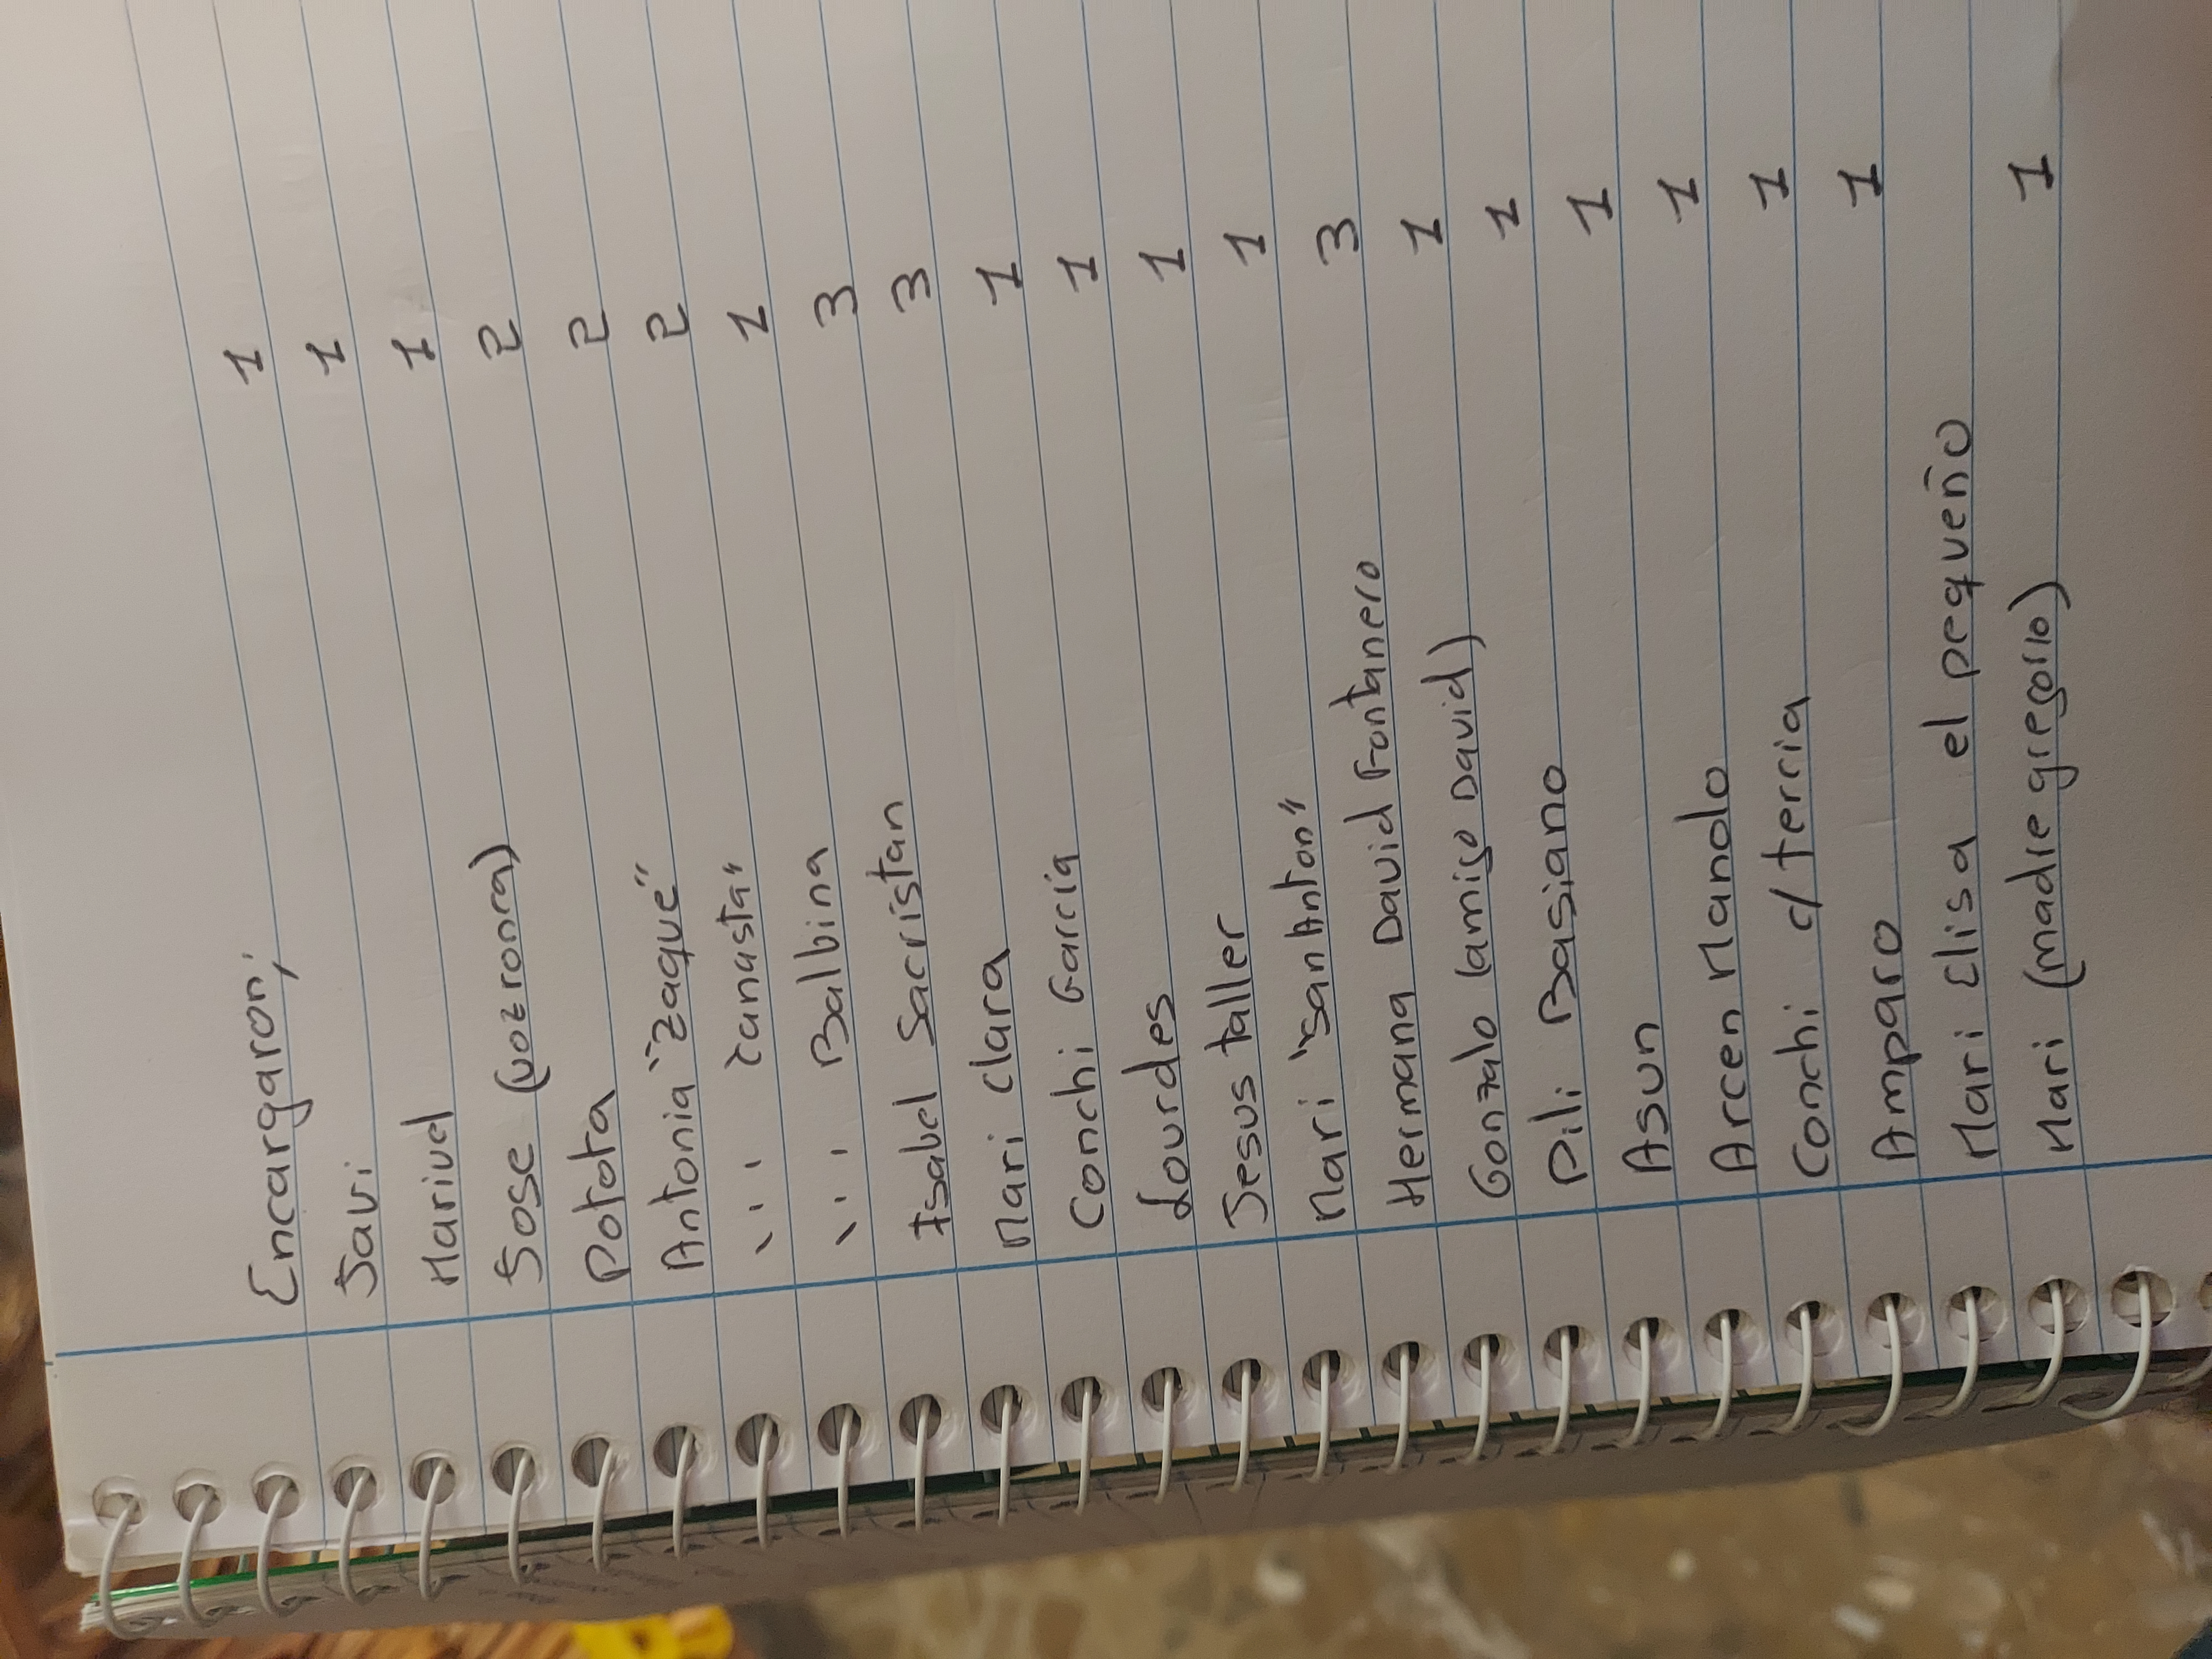 Encargaron;
Javi 1
Marivel 1
Jose (voz ronca) 1
Potota 2
Antonia "Zaque" 2
" Canasta" 2
" Balbina 1
Isabel Sacristan 3
Mari Clara 3
Conchi Garcia 1
Lourdes 1
Jesus taller 1
Mari "San Anton" 1
Hermana David Fontanero 3
Gonzalo (amigo David) 1
Pili Basiano 1
Asun 1
Arcen Manolo 1
Conchi c/ tercia 1
Amparo 1
Mari Elisa el pequeño
Mari (madre gregorio) 1